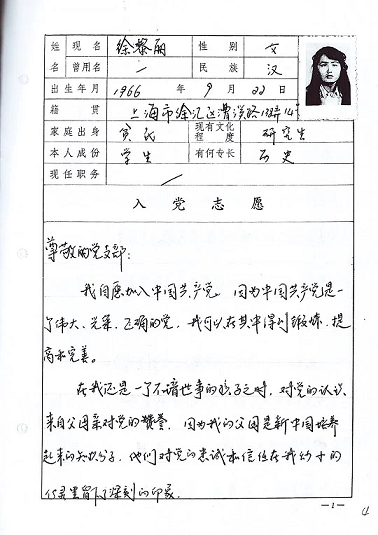 姓 现名 徐黎丽 性别 女
名 曾用名 / 民族 汉
出生年月 1966 年 9 月 22 日
籍贯 上海市徐汇区漕溪路
家庭出身 贫民 现有文化程度 研究生
本人成份 学生 有何专长 历史
现任职务 /
入党志愿
尊敬的党支部:
我自愿加入中国共产党。因为中国共产党是一
个伟大、光荣、正确的党,我可以在其中得到锻炼、提
高和完善。
在我还是一个不谙世事的孩子之时,对党的认识
来自父母亲对党的赞誉。因为我的父母是新中国培养
起来的知识分子,他们对党的忠诚和信任在我幼小的
心灵里留下了深刻的印象。
—1—